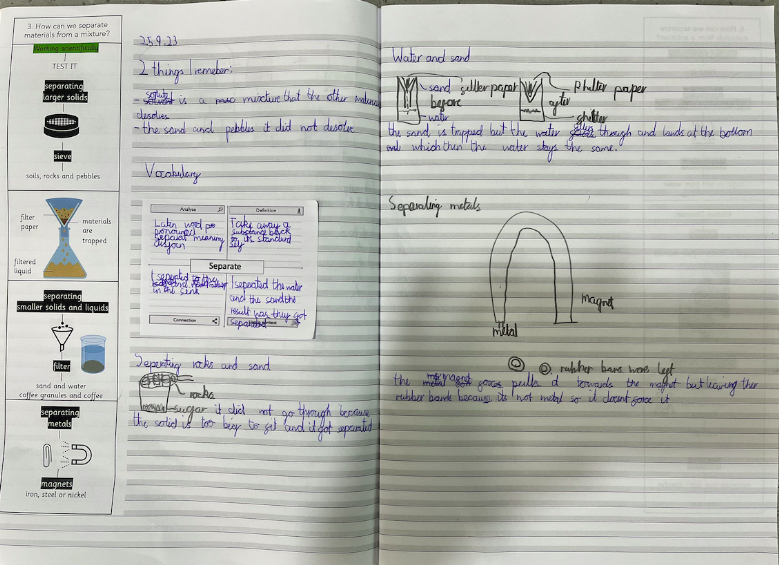 3. How can we separate
materials from a mixture?
Working scientifically
TEST IT
separating
larger solids
sieve
soils, rocks and pebbles
filter
paper
materials
are
trapped
filtered
liquid
separating
smaller solids and liquids
filter
sand and water
coffee granules and coffee
separating
metals
magnets
iron, steel or nickel
25.9.23
2 things I remeber:
- solute is a mixture that the other materials
disolves
- the sand and pebbles it did not disolve
Vocabulary
Analyse
Definition
Laten word
pronounced
separat meaning
disjoin
Take away a
substance back
to its standard
self
Separate
I seperated
in the sink
I seperated the water
and the sand the
result was they got
seperated
Connection
Seperating rocks and sand
rocks
sugar it did not go through because
the solid is too big to get and it got separated
Water and sand
sand
before
water
after
philter paper
the sand is trapped but the water goes through and lands at the bottom
which then the water stays the same.
Separating metals
magnet
metal
rubber bans were left
the magnet pulls it towards the magnet but leaving the
rubber bans becaus its not metal so it doesnt force it